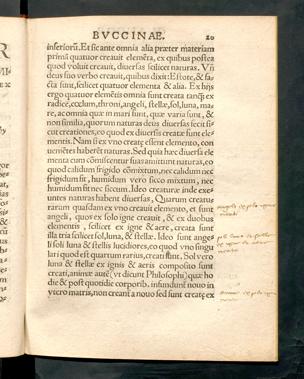 BVCCINAE. 20
inferiorũ. Et sic ante omnia alia præter materiam
primã quatuor creauit elemẽta, ex quibus postea
quod voluit creauit, diuersas scilicet naturas. Vñ
deus suo verbo creauit, quibus dixit: Estote, & fa-
cta sunt, scilicet quatuor elementa & alia. Ex his
ergo quatuor elemẽtis omnia sunt creata tanq̃ ex
radice, cœlum, throni, angeli, stellæ, sol, luna, ma-
re, ac omnia quæ in mari sunt, quæ varia sunt, &
non similia, quorum naturas deus diuersas fecit si-
cut creationes, eo quod ex diuersis creatæ sunt ele-
mentis. Nam si ex vno creatæ essent elemento, con
uenientes haberẽt naturas. Sed quia hæc diuersa ele
menta cum cõmiscentur suas amittunt naturas, eo
quod calidum frigido cõmixtum, nec calidum nec
frigidum fit, humidum vero sicco mixtum, nec
humidum fit nec siccum. Ideo creaturæ inde exe-
untes naturas habent diuersas, Quarum creatu-
rarum quasdam ex vno creauit elemento, et sunt
angeli, quos ex solo igne creauit, & ex duobus
elementis, scilicet ex igne & aere, creata sunt
illa tria scilicet sol, luna, & stellæ. Ideo sunt ange-
li soli luna & stellis lucidiores, eo quod vno singu
lari quod est quartum rarius, creati sunt. Sol vero
luna & stellæ ex ignis & aeris composito sunt
creati, animæ autẽ (vt dicunt Philosophi) quæ ho
die & post quotidie corporib. infundunt nouo in
vtero matris, non creant̃ a nouo sed sunt creatę ex